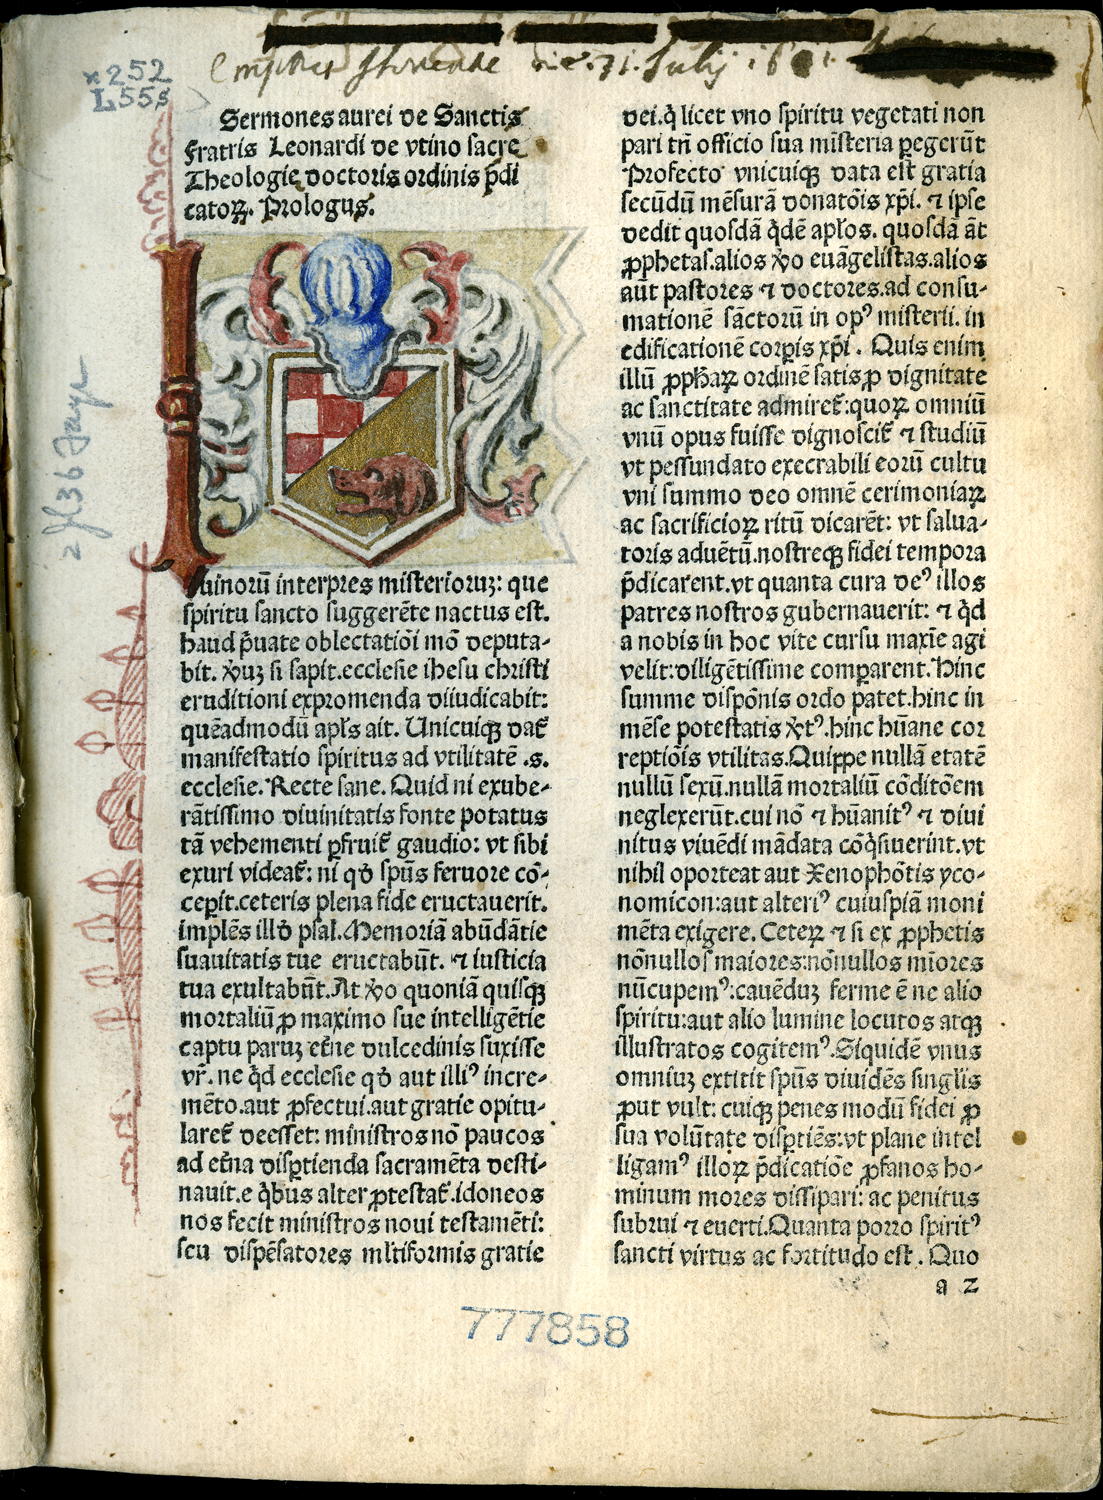 Emptus Florentie die 31. Julij 16
*252
L55s
2 fl 36 Jayr
Sermones aurei de Sanctis
fratris Leonardi de vtino sacre
Theologie doctoris ordinis p̄di
catoꝝ. Prologus.
Iuinorū interpres misterioruꝫ: que
spiritu sancto suggerēte nactus est.
haud p̄uate oblectatiōi mō deputa-
bit. ꝟuꝫ si sapit.ecclesie ihesu christi
eruditioni expromenda diiudicabit:
quēadmodū apl̄s ait. Unicuiqꝫ dat᷑
manifestatio spiritus ad vtilitatē .s.
ecclesie. Recte sane. Quid ni exube-
rātissimo diuinitatis fonte potatus
tā vehementi ꝑfruit᷑ gaudio: vt sibi
exuri videat᷑: ni qđ spūs feruore cō-
ceꝑit.ceteris plena fide eructauerit.
implēs illđ psal̄. Memoriā abūdātie
suauitatis tue eructabūt. ⁊ iusticia
tua exultabūt. At ꝟo quoniā quisqꝫ
mortaliū ꝓ maximo sue intelligētie
captu paruꝫ et̄ne dulcedinis suxisse
vr̄. ne q̄d ecclesie qđ aut illiꝰ incre-
mēto.aut ꝓfectui.aut gratie opitu-
laret᷑ deesset: ministros nō paucos
ad et̄na disꝑtienda sacramēta desti-
nauit.e q̄bus alter ꝓtestat᷑.idoneos
nos fecit ministros noui testamēti:
seu dispēsatores ml̄tiformis gratie
dei.q̄ licet vno spiritu vegetati non
pari tn̄ officio sua misteria ꝑegerūt
Profecto vnicuiqꝫ data est gratia
secūdū mēsurā donatōis xp̄i. ⁊ ipse
dedit quosdā q̄dē apl̄os. quosdā āt
ꝓphetas.alios ꝟo euāgelistas.alios
aūt pastores ⁊ doctores.ad consu-
mationē sāctorū in opꝰ misterii. in
edificationē corꝑis xp̄i. Quis enim
illū ꝓph̄aꝝ ordinē satis ꝓ dignitate
ac sanctitate admiret᷑: quoꝝ omniū
vnū opus fuisse dignoscit᷑ ⁊ studiū
vt pessundato execrabili eorū cultu
vni summo deo omnē cerimoniaꝝ
ac sacrificioꝝ ritū dicarēt: vt salua-
toris aduētū.nostreqꝫ fidei tempora
p̄dicarent.vt quanta cura deꝰ illos
patres nostros gubernauerit: ⁊ q̄d
a nobis in hoc vite cursu maxīe agi
velit: diligētissime comꝑarent. Hinc
summe dispōnis ordo patet.hinc in
mēse potestatis ꝟtꝰ.hinc hūane cor
reptiōis vtilitas. Quiꝑpe nullā etatē
nullū sexū.nullā mortaliū cōditōem
neglexerūt.cui nō ⁊ hūanitꝰ ⁊ diui
nitus viuēdi mādata cōq̄siuerint.vt
nihil oporteat aut Xenophōtis yco-
nomicon: aut alteriꝰ cuiuspiā moni
mēta exigere. Ceteꝝ ⁊ si ex ꝓphetis
nōnullos maiores: nōnullos mīores
nūcupemꝰ: cauēduꝫ ferme ē ne alio
spiritu: aut alio lumine locutos atqꝫ
illustratos cogitemꝰ. Siquidē vnus
omniuꝫ extitit spūs diuidēs singlis
ꝓut vult: cuiqꝫ penes modū fidei ꝓ
sua volūtate disꝑtiēs: vt plane intel
ligamꝰ illoꝝ p̄dicatiōe ꝓfanos ho-
minum mores dissipari: ac penitus
subrui ⁊ euerti. Quanta porro spiritꝰ
sancti virtus ac fortitudo est. Quo
a 2
777858